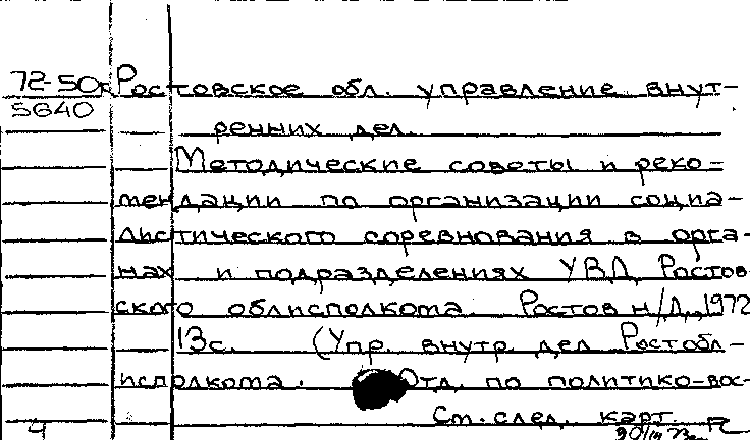 72-50к Ростовское обл. управление внут-
5640
ренних дел.
Методические советы и реко=
мендации по организации социа-
листического соревнования в орга-
нах и подразделениях УВД Ростов
ского облисполкома. Ростов н/Д., 1972
13с. (Упр. внутр. дел Ростобл-
исполкома. Отд. по политико-вос-
См. след. карт.
4